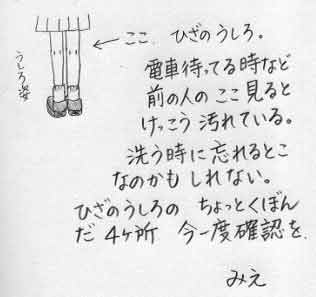 ここ、ひざのうしろ。
うしろ姿
電車待ってる時など
前の人のここ見ると
けっこう汚れている。
洗う時に忘れるとこ
なのかもしれない。
ひざのうしろの ちょっとくぼん
だ 4ヶ所 今一度確認を
みえ